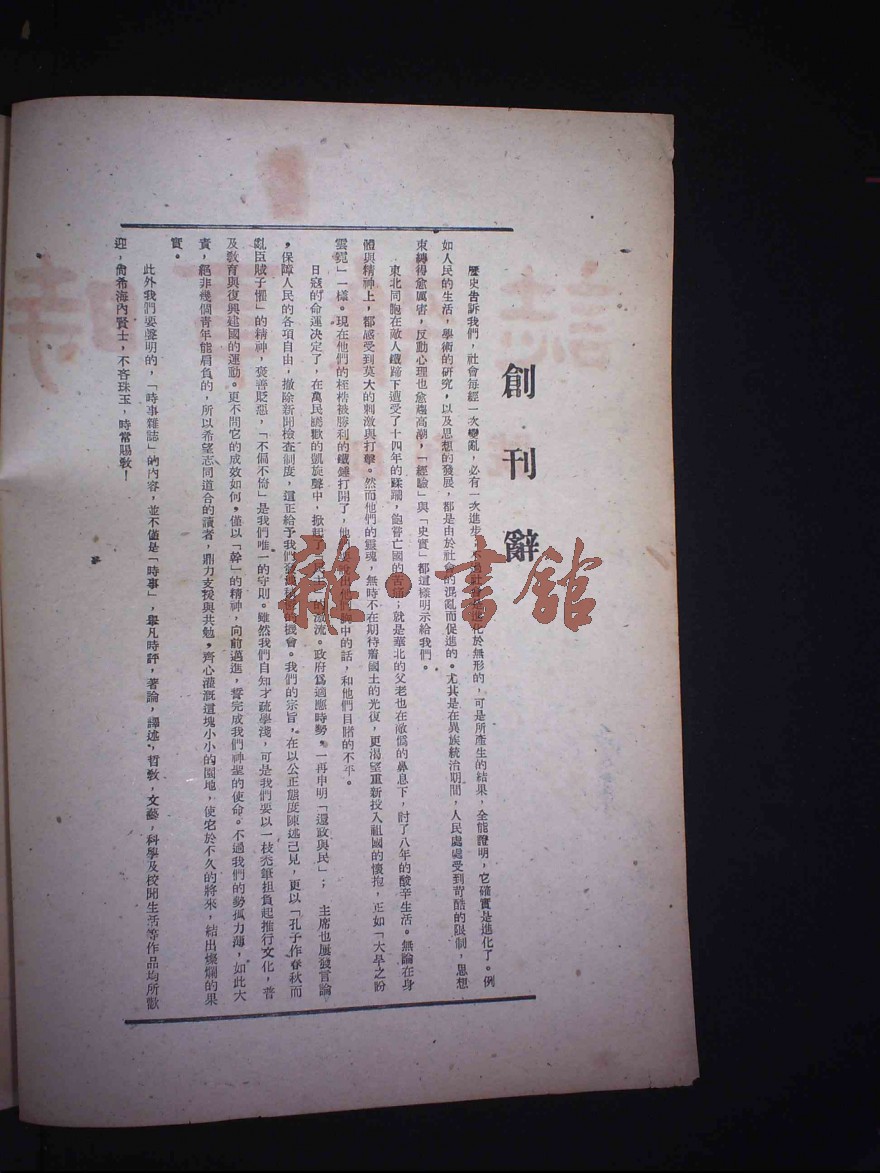 創刊辭
歷史告訴我們，社會每經一次變亂，必有一次進步，不過社會是進化於無形的，可是所產生的結果，全能證明，它確實是進化了。例
如人民的生活，學術的研究，以及思想的發展，都是由於社會的混亂而促進的。尤其是在異族統治期間，人民處處受到苛酷的限制，思想
束縛得愈厲害，反動心理也愈趨高潮，「經驗」與「史實」都這樣明示給我們。
東北同胞在敵人鐵蹄下遭受了十四年的蹂躪，飽嘗亡國的苦痛；就是華北的父老也在敵僞的鼻息下，討了八年的酸辛生活。無論在身
體與精神上，都感受到莫大的刺激與打擊。然而他們的靈魂，無時不在期待着國土的光復，更渴望重新投入祖國的懷抱，正如「大旱之盼
雲霓」一樣。現在他們的桎梏被勝利的鐵錘打開了，他們說出他們胸中的話，和他們目睹的不平。
日寇的命運決定了，在萬民騰歡的凱旋聲中，掀起了「民主」的激流。政府爲適應時勢，一再申明「還政與民」； 主席也屢發言論
，保障人民的各項自由，撤除新聞檢查制度，這正給予我們發揚輿論的機會。我們的宗旨，在以公正態度陳述己見，更以「孔子作春秋而
亂臣賊子懼」的精神，褒善貶惡，「不偏不倚」是我們唯一的守則。雖然我們自知才疏學淺，可是我們要以一枝禿筆担負起推行文化，普
及敎育與復興建國的運動。更不問它的成效如何，僅以「幹」的精神，向前邁進，誓完成我們神聖的使命。不過我們的勢孤力薄，如此大
責，絕非幾個青年能肩負的，所以希望志同道合的讀者，鼎力支援與共勉，齊心灌溉這塊小小的園地，使它於不久的將來，結出燦爛的果
實。
此外我們要聲明的，「時事雜誌」的內容，並不僅是「時事」，舉凡時評，著論，譯述，哲敎，文藝，科學及校聞生活等作品均所歡
迎，尙希海內賢士，不吝珠玉，時常賜敎！
雜·書館